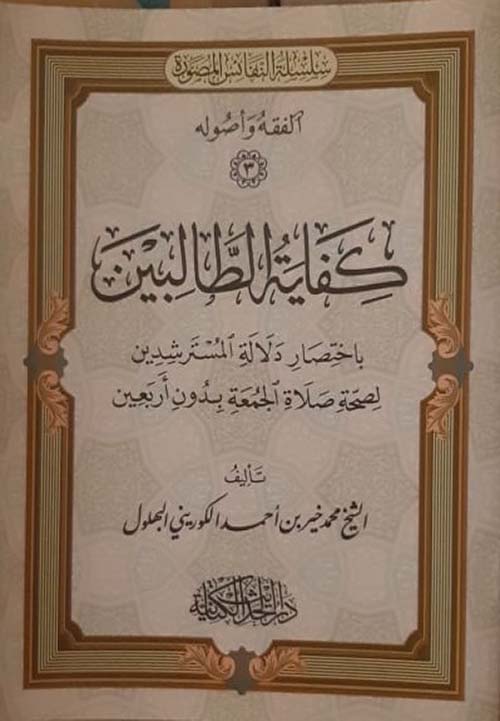 سلسلة النفائس المصورة
الفقه وأصوله
٣
كِفَايَةُ الطَّالِبِيْنَ
باختصار دلالة المسترشدين
لصحة صلاة الجمعة بدون أربعين
تأليف
الشيخ محمد خير بن أحمد الكوريني البهلول
دار